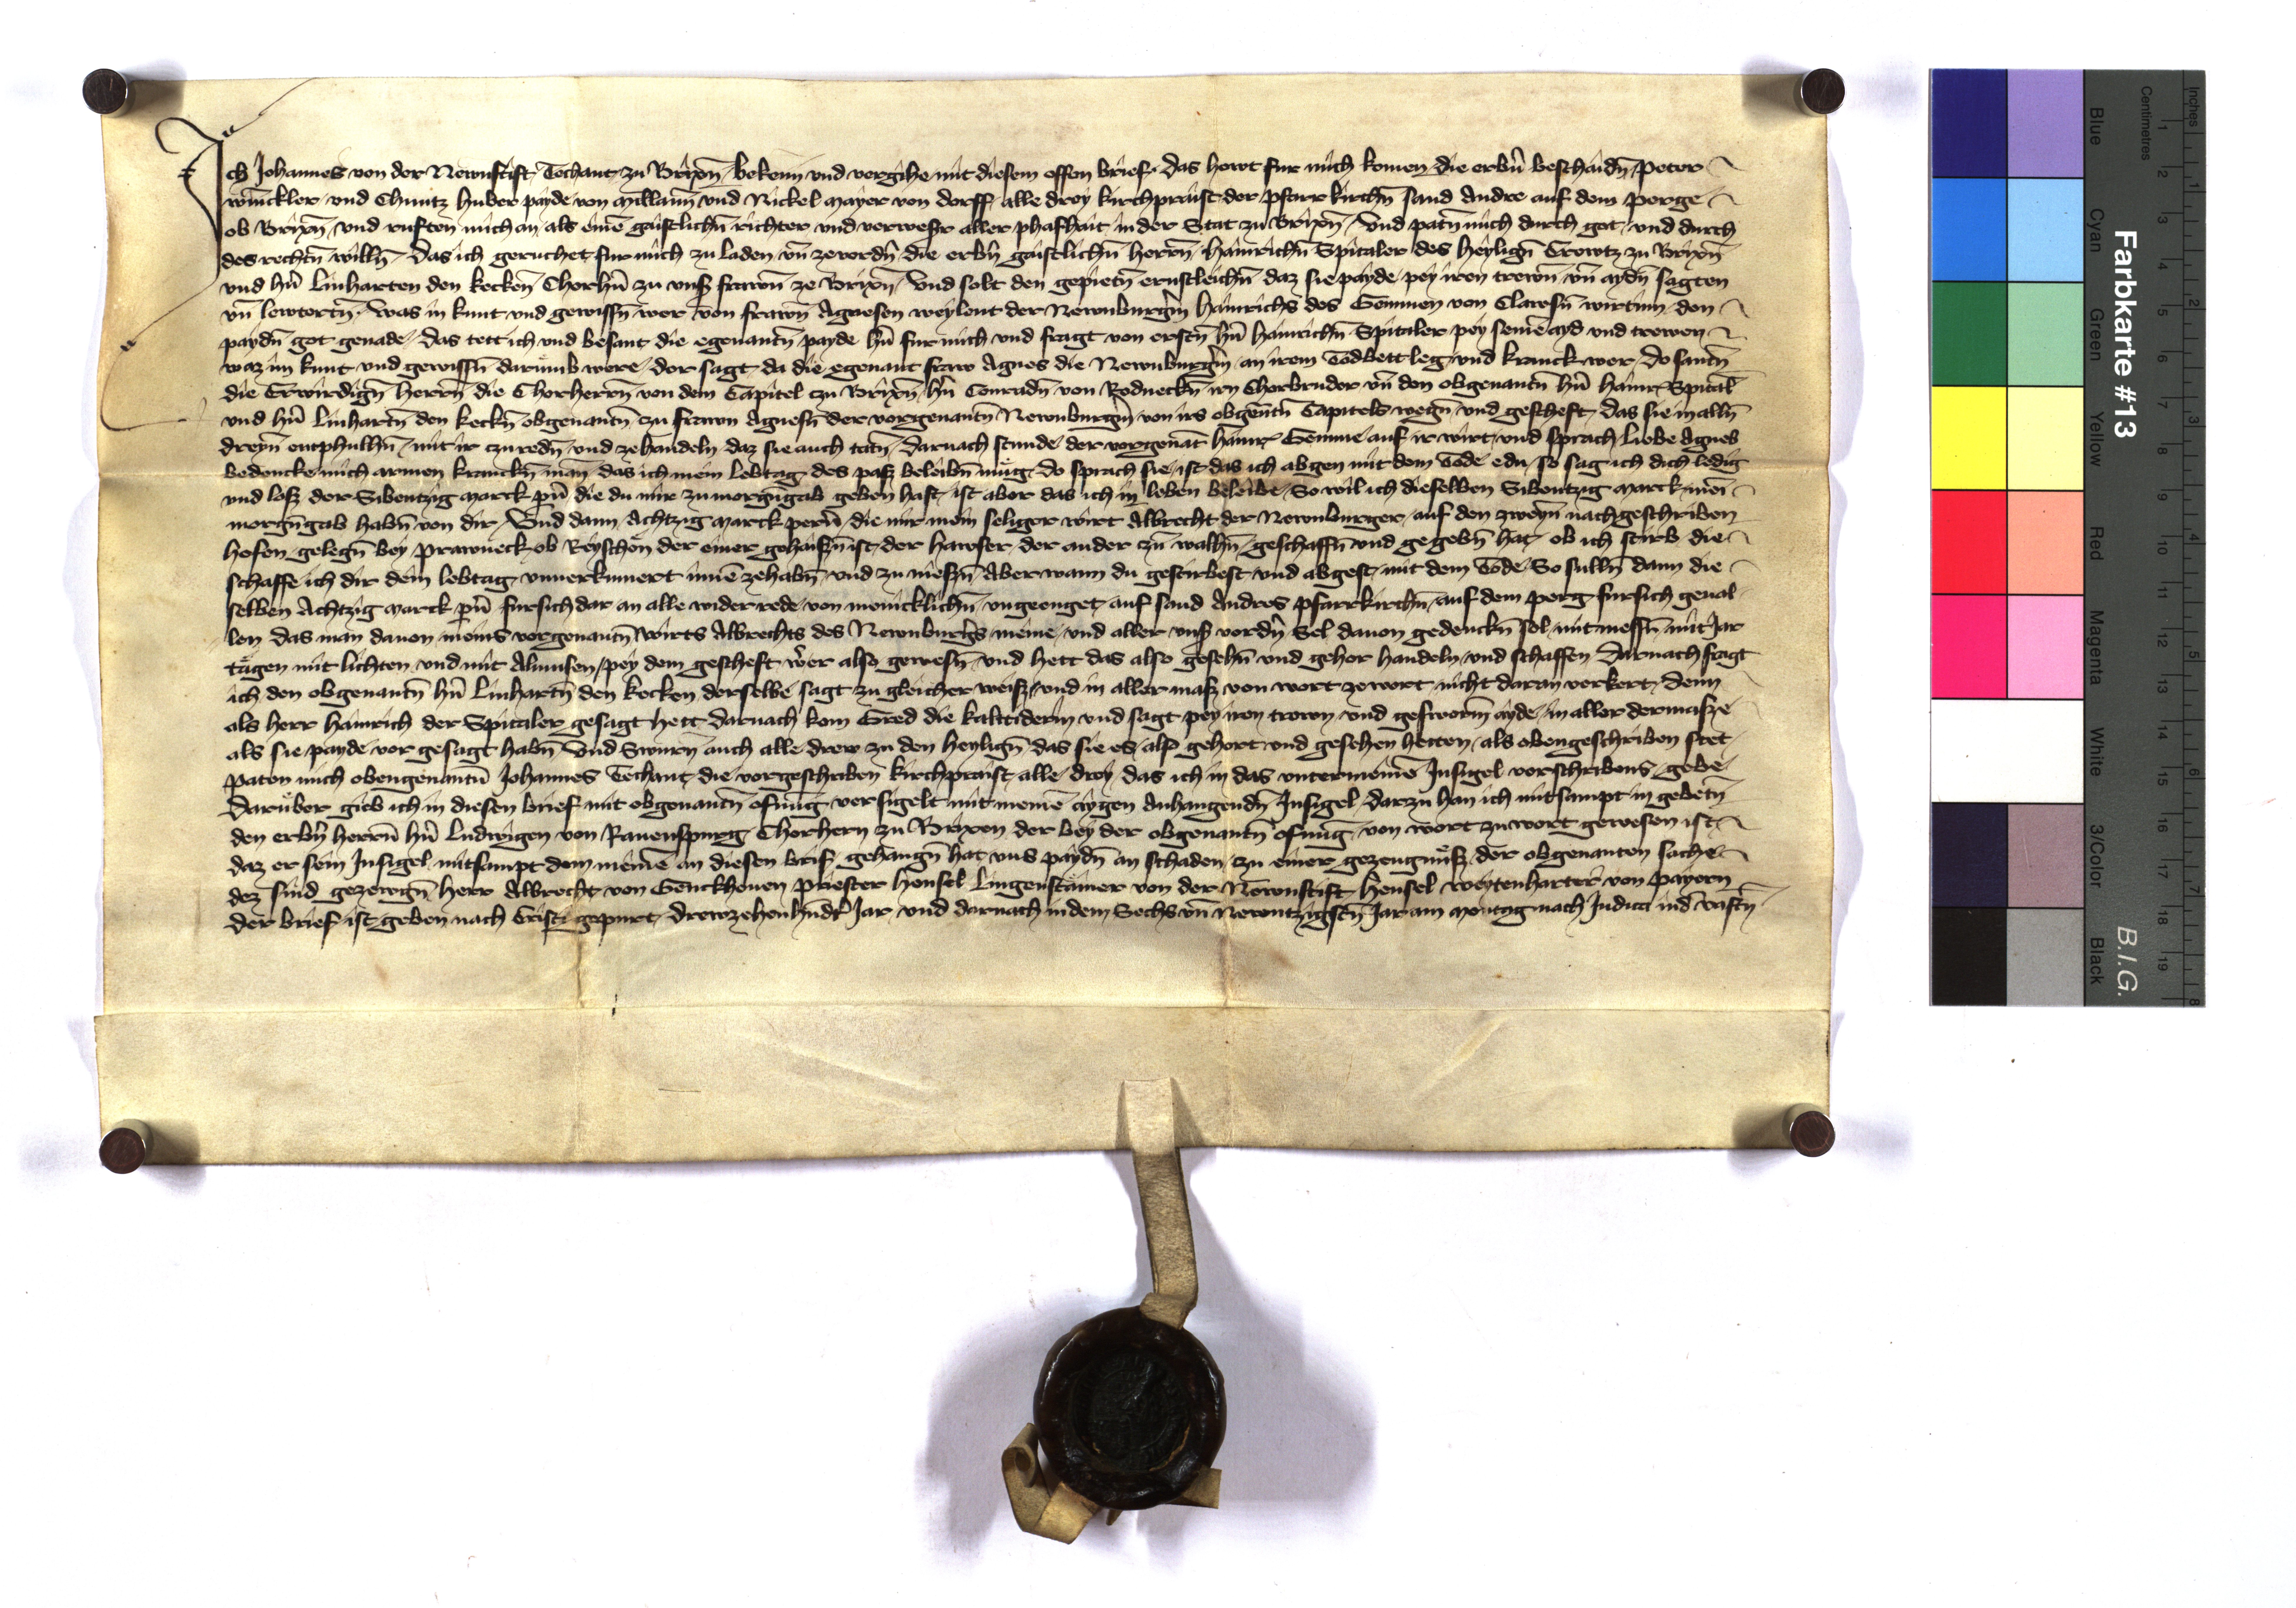 Ich Johannes von der Newnstift Techant zu Brixn̄ bekenn vnd vergihe mit diesem offen brief das hewt fur mich komen die erbn̄ beschaidn̄ Peter
winckler vnd Chuntz huber payde von Mullann vnd Nickel Mayer von dorff alle drey kirchpraist der pfarrkirchn̄ sand Andre auf dem perge
ob Brixn̄ vnd rufften mich an als eine gaistlichn̄ richter vnd verweser aller phafhait in der Stat zu Brixn̄ Vnd patn̄ mich durch got vnd durch
des rechtn̄ willn̄ Das ich geruchet fur mich zu laden vn̄ ze vordn̄ die erbn̄ gaistlichn̄ herrn̄ hainrichn̄ Spitaler des heylign̄ Crewtz zu Brixn̄
vnd hn̄ Linharten den kecken̄ Chorhn̄ zu vnß frawn̄ ze Brixn̄ Vnd solt den gepietn̄ ernstleichn̄ daz sie payde pey iren trewn̄ vn̄ aydn̄ sagten
vn̄ lewtertn̄ Was in kunt vnd gewissn̄ wer von frawn̄ Agnesen weylent der Newnburgn̄ hainrichs des Gemmen von Clawsn̄ wirtinn den
paydn̄ got genade Das tett ich vnd besant die egenantn̄ payde hn̄ fur mich vnd fragt von erstn̄ hn̄ hainrichn̄ Spitaler pey seine ayd vnd trewen
waz im kunt vnd gewissn̄ darumb were Der sagt da die egenant fraw Agnes die Newnburgn̄ an irem Todbett leg vnd kranck wer do santn̄
die Erwirdign̄ herrn̄ die Chorherrn̄ von dem Capitel zu Brixn̄ hn̄ Conradn̄ von Rodneckn̄ irn Chorbruder vn̄ den obgenantn̄ hn̄ hainr Spital
vnd hn̄ Linhartn̄ den keckn̄ obgenantn̄ zu frawn Agnesn̄ der vorgenantn Newnburgn̄ von irs obgentn̄ Capitels wegn̄ vnd gescheft das sie in alln̄
dreyn̄ entphulhn̄ mit ir czu redn̄ vnd zehandeln daz sie auch tatn̄ Darnach stunde der vorgenat hainr Gemme auf ir wirt vnd sprach liebe Agnes
bedencke mich armen kranckn̄ man das ich mein lebtag des paß beleibn̄ mug do sprach sie ist das ich abgen mit dem Tode edn so sag ich dich ledig
vnd loß der Sibentzig marck pn̄ die du mir zu morgengab geben hast ist aber das ich in leben beleibe So wil ich dieselben Sibentzig marck mei
morgn̄gab habn̄ von dir Vnd dann Achtzig marck pern̄ die mir mein seliger wirt Albrecht der Newnburger auf den zweyn̄ nachgeschriben
hofen gelegn̄ bey prawneck ob Reyschen der einer gehaißn̄ ist der hawser der ander zu walhn̄ geschaffn̄ vnd gegebn̄ hat ob ich stirb die
schaffe ich dir dein lebtag vnuerkumert inne zehabn̄ vnd zu nießn̄ Aber wann du gestirbest vnd abgest mit dem Tode So sulln̄ dann die
selben Achtzig marck pn̄ fursich dar an alle widerrede von menicklichn̄ vngeenget auf sand Andres pfarrkirchn̄ auf dem perg fursich geual
len das man dauon meins vorgenantn̄ wirts Albrechts des Newnburgs meine vnd aller vnß vordn̄ Sel dauon gedenckn̄ sol mit messn̄ mit Jar
tagen mit lichten vnd mit Almusen pey dem gescheft wer also gewesn̄ vnd hett das also gesehn̄ vnd gehor handeln vnd schaffen Darnach fragt
ich den obgenantn̄ hn̄ Linhartn̄ den kecken derselbe sagt zu gleicher weiß vnd in aller maß von wort ze wort nicht daran verkert Denn
als herr hainrich der Spitaler gesagt hett Darnach kom Gred die kalttiderin vnd sagt pey iren trewn vnd gesworn̄ ayde in aller der maße
als sie payde vor gesagt habn̄ Vnd Swurn̄ auch alle drew zu den heylign̄ das sie es also gehort vnd gesehen hetten als oben geschriben stet
Paten mich obengenantn̄ Johannes Techant die vorgeschriben kirchpraist alle drey das ich in das vnter meine Insigel verschribens gebe
Darüber gib ich in diesen brief mit obgenantn̄ ofnug versigelt mit meine aygen Anhangendn̄ Insigel Darzu han ich mitsampt in gebetn̄
den erbn̄ herrn̄ hn̄ Ludwigen von Rauenspurg Chorhern zu Brixen der bey der obgenantn̄ ofnug von wort zu wort gewesen ist
daz er sein Insigel mitsampt dem meine an diesen brif gehangn̄ hat vns paydn̄ an schaden zu einer gezeugnuß der obgenanten sache
dez sind gezewgn̄ herr Albrecht von Genckhouen priester hensel Lingenstainer von der Newnstift hensel weytenharter von payern
der brief ist geben nach Cristi gepurt drewzehenhundt Jar vnd darnach in dem Sechs vn̄ Newntzigstn̄ Jar am Montag nach Judica in d̄ vastn̄
Farbkarte #13
B.I.G.
Inches
Centimetres
1 2 3 4 5 6 7 8 9 10 11 12 13 14 15 16 17 18 19
1 2 3 4 5 6 7 8
Blue
Cyan
Green
Yellow
Red
Magenta
White
3/Color
Black